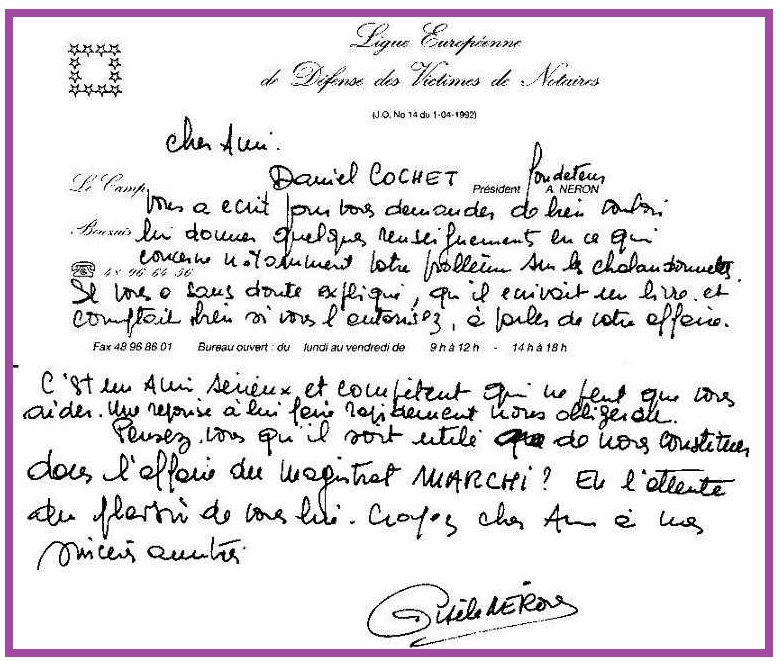 Ligue Européenne
de Défense des Victimes de Notaires
(J.O. No 14 du 1-04-1992)
cher Ami.
Daniel COCHET
fondateur
Président A. NERON
Le Camp
vous a ecrit pour vous demander de bien vouloir
Beuzuis
lui donner quelques renseignement en ce qui
concerne notamment votre problème sur les chalandonnettes.
48 96 64 56
Il vous a sans doute expliqué, qu'il ecrivait un livre et
comptait bien si vous l'autorisez, à parler de votre affaire.
Fax 48 96 86 01 Bureau ouvert : du lundi au vendredi de 9 h à 12 h - 14 h à 18 h
C'est un Ami serieux et compétent qui ne peut que vous
aider. Une reponse à lui faire rapidement nous obligerait.
Pensez vous qu'il soit utile de nous constituer
dans l'affaire du magistrat MARCHI? En l'attente
du plaisir de vous lire. Croyez cher Ami à mes
sincères amitiés
Gisèle NERON